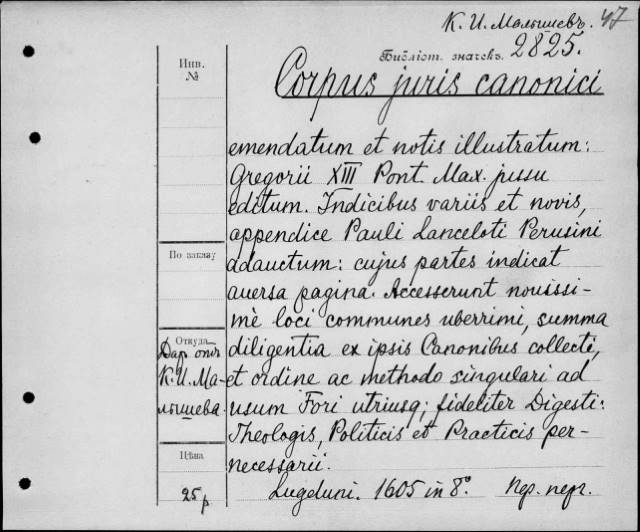 К. И. Малышевъ. 47
Библіот. значекъ. 2825.
Инв.
№
Corpus juris canonici
emendatum et notis illustratum:
Gregorii XIII Pont. Max. jussu
editum. Indicibus variis et novis,
appendice Pauli Lanceloti Perusini
adauctum: cujus partes indicat
auersa pagina. Accesserunt nouissi-
mè loci communes uberrimi, summa
diligentia ex ipsis Canonibus collecti,
et ordine ac methodo singulari ad
usum Fori utriusq; fideliter Digesti:
Theologis, Politicis et Practicis per-
necessarii.
Lugduni. 1605 in 8°. Пер. пергр.
По заказу
Откуда
Даръ отъ
К. И. Ма-
лышева.
Цѣна
25 р